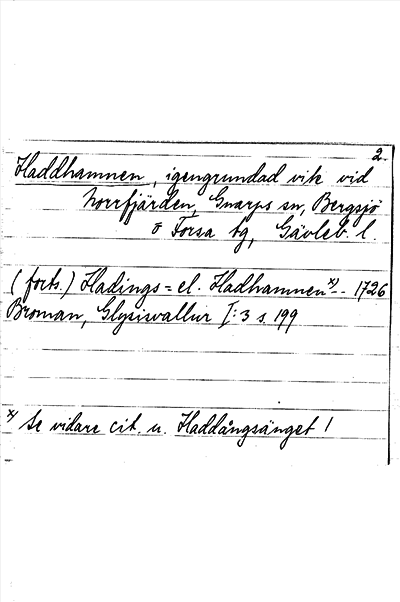 2.
Haddhamnen, igengrundad vik vid
Norrfjärden, Gnarps sn, Bergsjö
o Forsa tg, Gävleb. l.
(forts.) Hadings= el. Hadhamnen x) -. 1726
Broman, Glysisvallur I:3 s. 199
x) Se vidare cit. u. Haddångsänget!